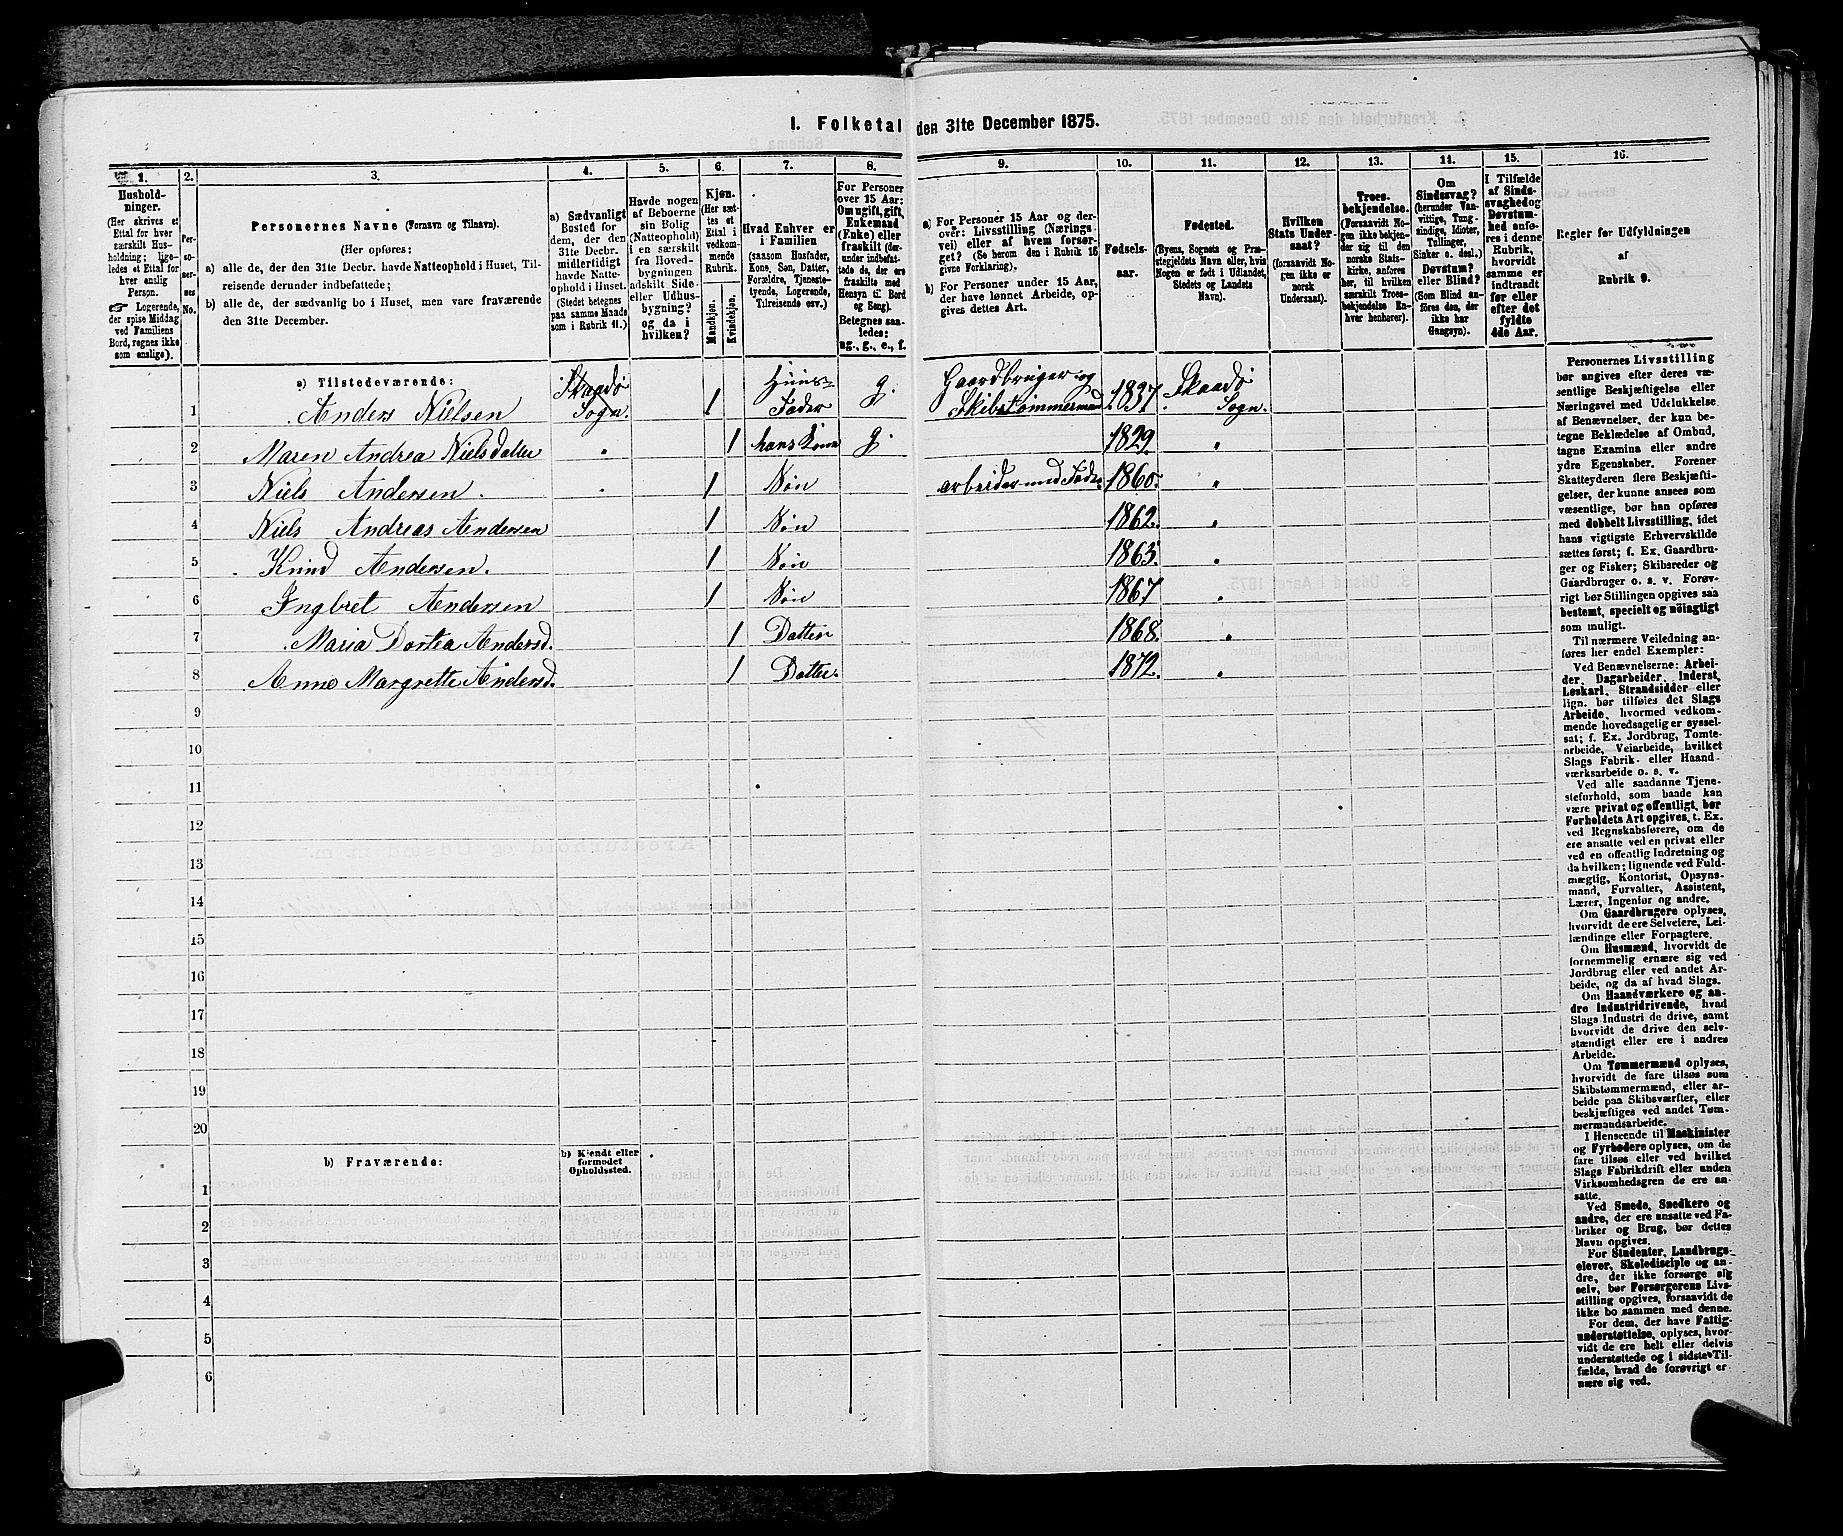 1. Folketal den 31te December 1875.
1. 2. 3. 4. 5. 6. 7. 8. 9. 10. 11. 12. 13. 14. 15. 16.
Hushold-
ninger.
(Her skrives et
Ettal for hver
særskilt Hus-
holdning; lige-
ledes et Ettal for
hver enslig
Person.
☞ Logerende,
der spise Middag
ved Familiens
Bord, regnes ikke
som enslige).
Per-
so-
ner-
nes
No.
Personernes Navne (Fornavn og Tilnavn).
(Her opføres:
a) alle de, der den 31te Decbr. havde Natteophold i Huset, Til-
reisende derunder indbefattede;
b) alle de, der sædvanlig bo i Huset, men vare fraværende
den 31te December.
a) Sædvanligt
Bosted for
dem, der den
31te Decbr.
midlertidigt
havde Natte-
ophold i Huset.
(Stedet betegnes
paa samme Maade
som i Rubrik 11.)
Havde nogen
af Beboerne
sin Bolig
(Natteophold)
i en særskilt
fra Hoved-
bygningen
adskilt Side-
eller Udhus-
bygning?
og da i
hvilken?
Kjøn.
(Her sæt-
tes et
Ettal i
vedkom-
mende
Rubrik.
Mandkjøn.
Kvindekjøn.
Hvad Enhver er
i Familien
(saasom Husfader,
Kone, Søn, Datter,
Forældre, Tjeneste-
tyende, Logerende,
Tilreisende osv.)
For Personer
over 15 Aar:
Om ugift, gift,
Enkemand
(Enke) eller
fraskilt (der-
under indbefat-
tede de, der ere
fraskilte med
Hensyn til Bord
og Seng).
Betegnes saa-
ledes:
ug., g., e., f.
a) For Personer 15 Aar og der-
over: Livsstilling (Nærings-
vei) eller af hvem forsør-
get? (Se herom den i Rubrik 16
givne Forklaring),
b) For Personer under 15 Aar,
der have lønnet Arbeide, op-
gives dettes Art.
Fødsels-
aar.
Fødested.
(Byens, Sognets og Præ-
stegjeldets Navn eller, hvis
Nogen er født i Udlandet,
Stedets og Landets
Navn).
Hvilken
Stats Under-
saat?
(forsaavidt No-
gen ikke er
norsk
Undersaat).
Troes-
bekjendelse.
(Forsaavidt No-
gen ikke bekjen-
der sig til den
norske Stats-
kirke, anføres
her, til hvilken
særskilt Troes-
bekjendelse En-
hver henhører).
Om
Sindssvag?
(herunder Van-
vittige, Tung-
sindige, Idioter,
Tullinger,
Sinker o. desl.)
Døvstum?
eller Blind?
(Som Blind an-
føres den, der
ikke har
Gangsyn).
I Tilfælde
af Sinds-
svaghed og
Døvstum-
hed anfø-
res i denne
Rubrik,
hvorvidt
samme er
indtraadt
før eller
efter det
fyldte
4de Aar.
Regler for Udfyldningen
af
Rubrik 9.
a) Tilstedeværende:
1 Anders Nielsen Skaadø Sogn. 1 Huus-Fader g. Gaardbruger og Skibstømmermand 1837. Skaadø Sogn.
2 Maren Andrea Nielsdatter " 1 hans Kone g. 1829. "
3 Niels Andersen. " 1 Søn arbeider med Fader. 1860. "
4 Niels Andreas Andersen 1 Søn 1862. "
5 Knud Andersen. 1 Søn 1865. "
6 Ingbret Andersen 1 Søn 1867. "
7 Maria Dortea Andersd. 1 Datter 1868. "
8 Anne Margrette Andersd. 1 Datter. 1872. "
9
10
11
12
13
14
15
16
17
18
19
20
b) Fraværende:
b) Kjendt eller
formodet
Opholdssted.
1
2
3
4
5
6
Personernes Livsstilling
bør angives efter deres væ-
sentlige Beskjæftigelse eller
Næringsvei med Udelukkelse
af Benævnelser, der kun be-
tegne Beklædelse af Ombud,
tagne Examina eller andre
ydre Egenskaber. Forener
Skatteyderen flere Beskjæfti-
gelser, der kunne ansees som
væsentlige, bør han opføres
med dobbelt Livsstilling, idet
hans vigtigste Erhvervskilde
sættes først; f. Ex. Gaardbru-
ger og Fisker; Skibsreder og
Gaardbruger o. s. v. Forøv-
rigt bør Stillingen opgives saa
bestemt, specielt og nöiagtigt
som muligt.
Til nærmere Veiledning an-
føres her endel Exempler:
Ved Benævnelserne: Arbei-
der, Dagarbeider, Inderst,
Løskarl, Strandsidder eller
lign. bør tilføies det Slags
Arbeide, hvormed vedkom-
mende hovedsagelig er syssel-
sat; f. Ex. Jordbrug, Tomte-
arbeide, Veiarbeide, hvilket
Slags Fabrik- eller Haand-
værksarbeide o. s. v.
Ved alle saadanne Tjene-
steforhold, som baade kan
være privat og offentligt, bør
Forholdets Art opgives, t. Ex.
ved Regnskabsførere, om de
ere ansatte ved en privat eller
ved en offentlig Indretning og
da hvilken; lignende ved Fuld-
mægtig, Kontorist, Opsyns-
mand, Forvalter, Assistent,
Lærer, Ingeniør og andre.
Om Gaardbrugere oplyses,
hvorvidt de ere Selveiere, Lei-
lændinge eller Forpagtere.
Om Husmænd, hvorvidt de
fornemmelig ernære sig ved
Jordbrug eller ved andet Ar-
beide, og da af hvad Slags.
Om Haandværkere og an-
dre Industridrivende, hvad
Slags Industri de drive, samt
hvorvidt de drive den selv-
stændigt eller ere i andres
Arbeide.
Om Tømmermænd oplyses,
hvorvidt de fare tilsøs som
Skibstømmermænd, eller ar-
beide paa Skibsværfter, eller
beskjæftiges ved andet Tøm-
mermandsarbeide.
I Henseende til Maskinister
og Fyrbødere oplyses, om de
fare tilsøs eller ved hvilket
Slags Fabrikdrift eller anden
Virksomhedsgren de ere an-
satte.
Ved Smede, Snedkere og
andre, der ere ansatte ved Fa-
briker og Brug, bør dettes
Navn opgives.
For Studenter, Landbrugs-
elever, Skoledisciple og an-
dre, der ikke forsørge sig
selv, bør Forsørgerens Livs-
stilling opgives, forsaavidt de
ikke bo sammen med denne.
For dem, der have Fattig-
understøttelse, oplyses, hvor-
vidt de ere helt eller delvis
understøttede og i sidste Til-
fælde, hvad de forøvrigt er
nære sig ved.